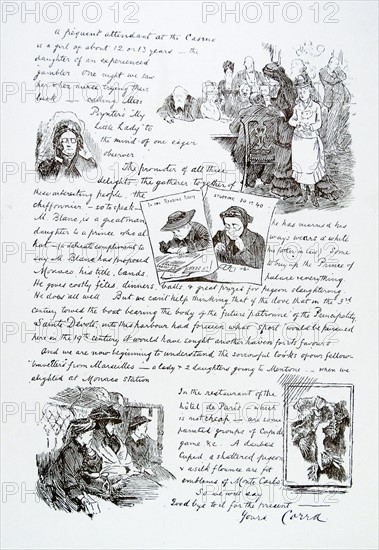 A frequent attendant at the Casino
is a girl of about 12 or 13 years — the
daughter of an experienced
gambler. One night we saw
her & her nurse trying their
luck — recalling Miss
Poynter's My
Little Lady to
the mind of one eager
observer
The promoter of all these
delights, the gatherer together of
these interesting people, the
cheffonnier — so to speak —
M. Blanc, is a great man
daughter to a prince who al
hat — (a delicate compliment to
say M. Blanc has proposed
Monaco his title, lands.
he has married his
ways wears a white
his father in law). Some
to buy of the Prince of
palace & everything
In the Reading Room
He gives costly fêtes, dinners, balls & great prizes for pigeon slaughtering
He does all well. But we can't help thinking that if the dove that in the 3rd
century towed the boat bearing the body of the future patroness of the Principality
Sainte Dévote, into this harbour had foreseen what "sport" would be pursued
here in the 19th century it would have sought another haven for its favourite
And we are now beginning to understand the sorrowful looks of our fellow-
travellers from Marseilles — a lady & 2 daughters going to Mentone — when we
alighted at Monaco Station
In the restaurant of the
hôtel de Paris — which
is not cheap — are some
painted groups of Cupids
game &c. A
Cupid a shattered pigeon
& a silk flounce are fit
emblems of Monte Carlo
So we will say
Good bye to it for the present
Yours Corra
PHOTO12